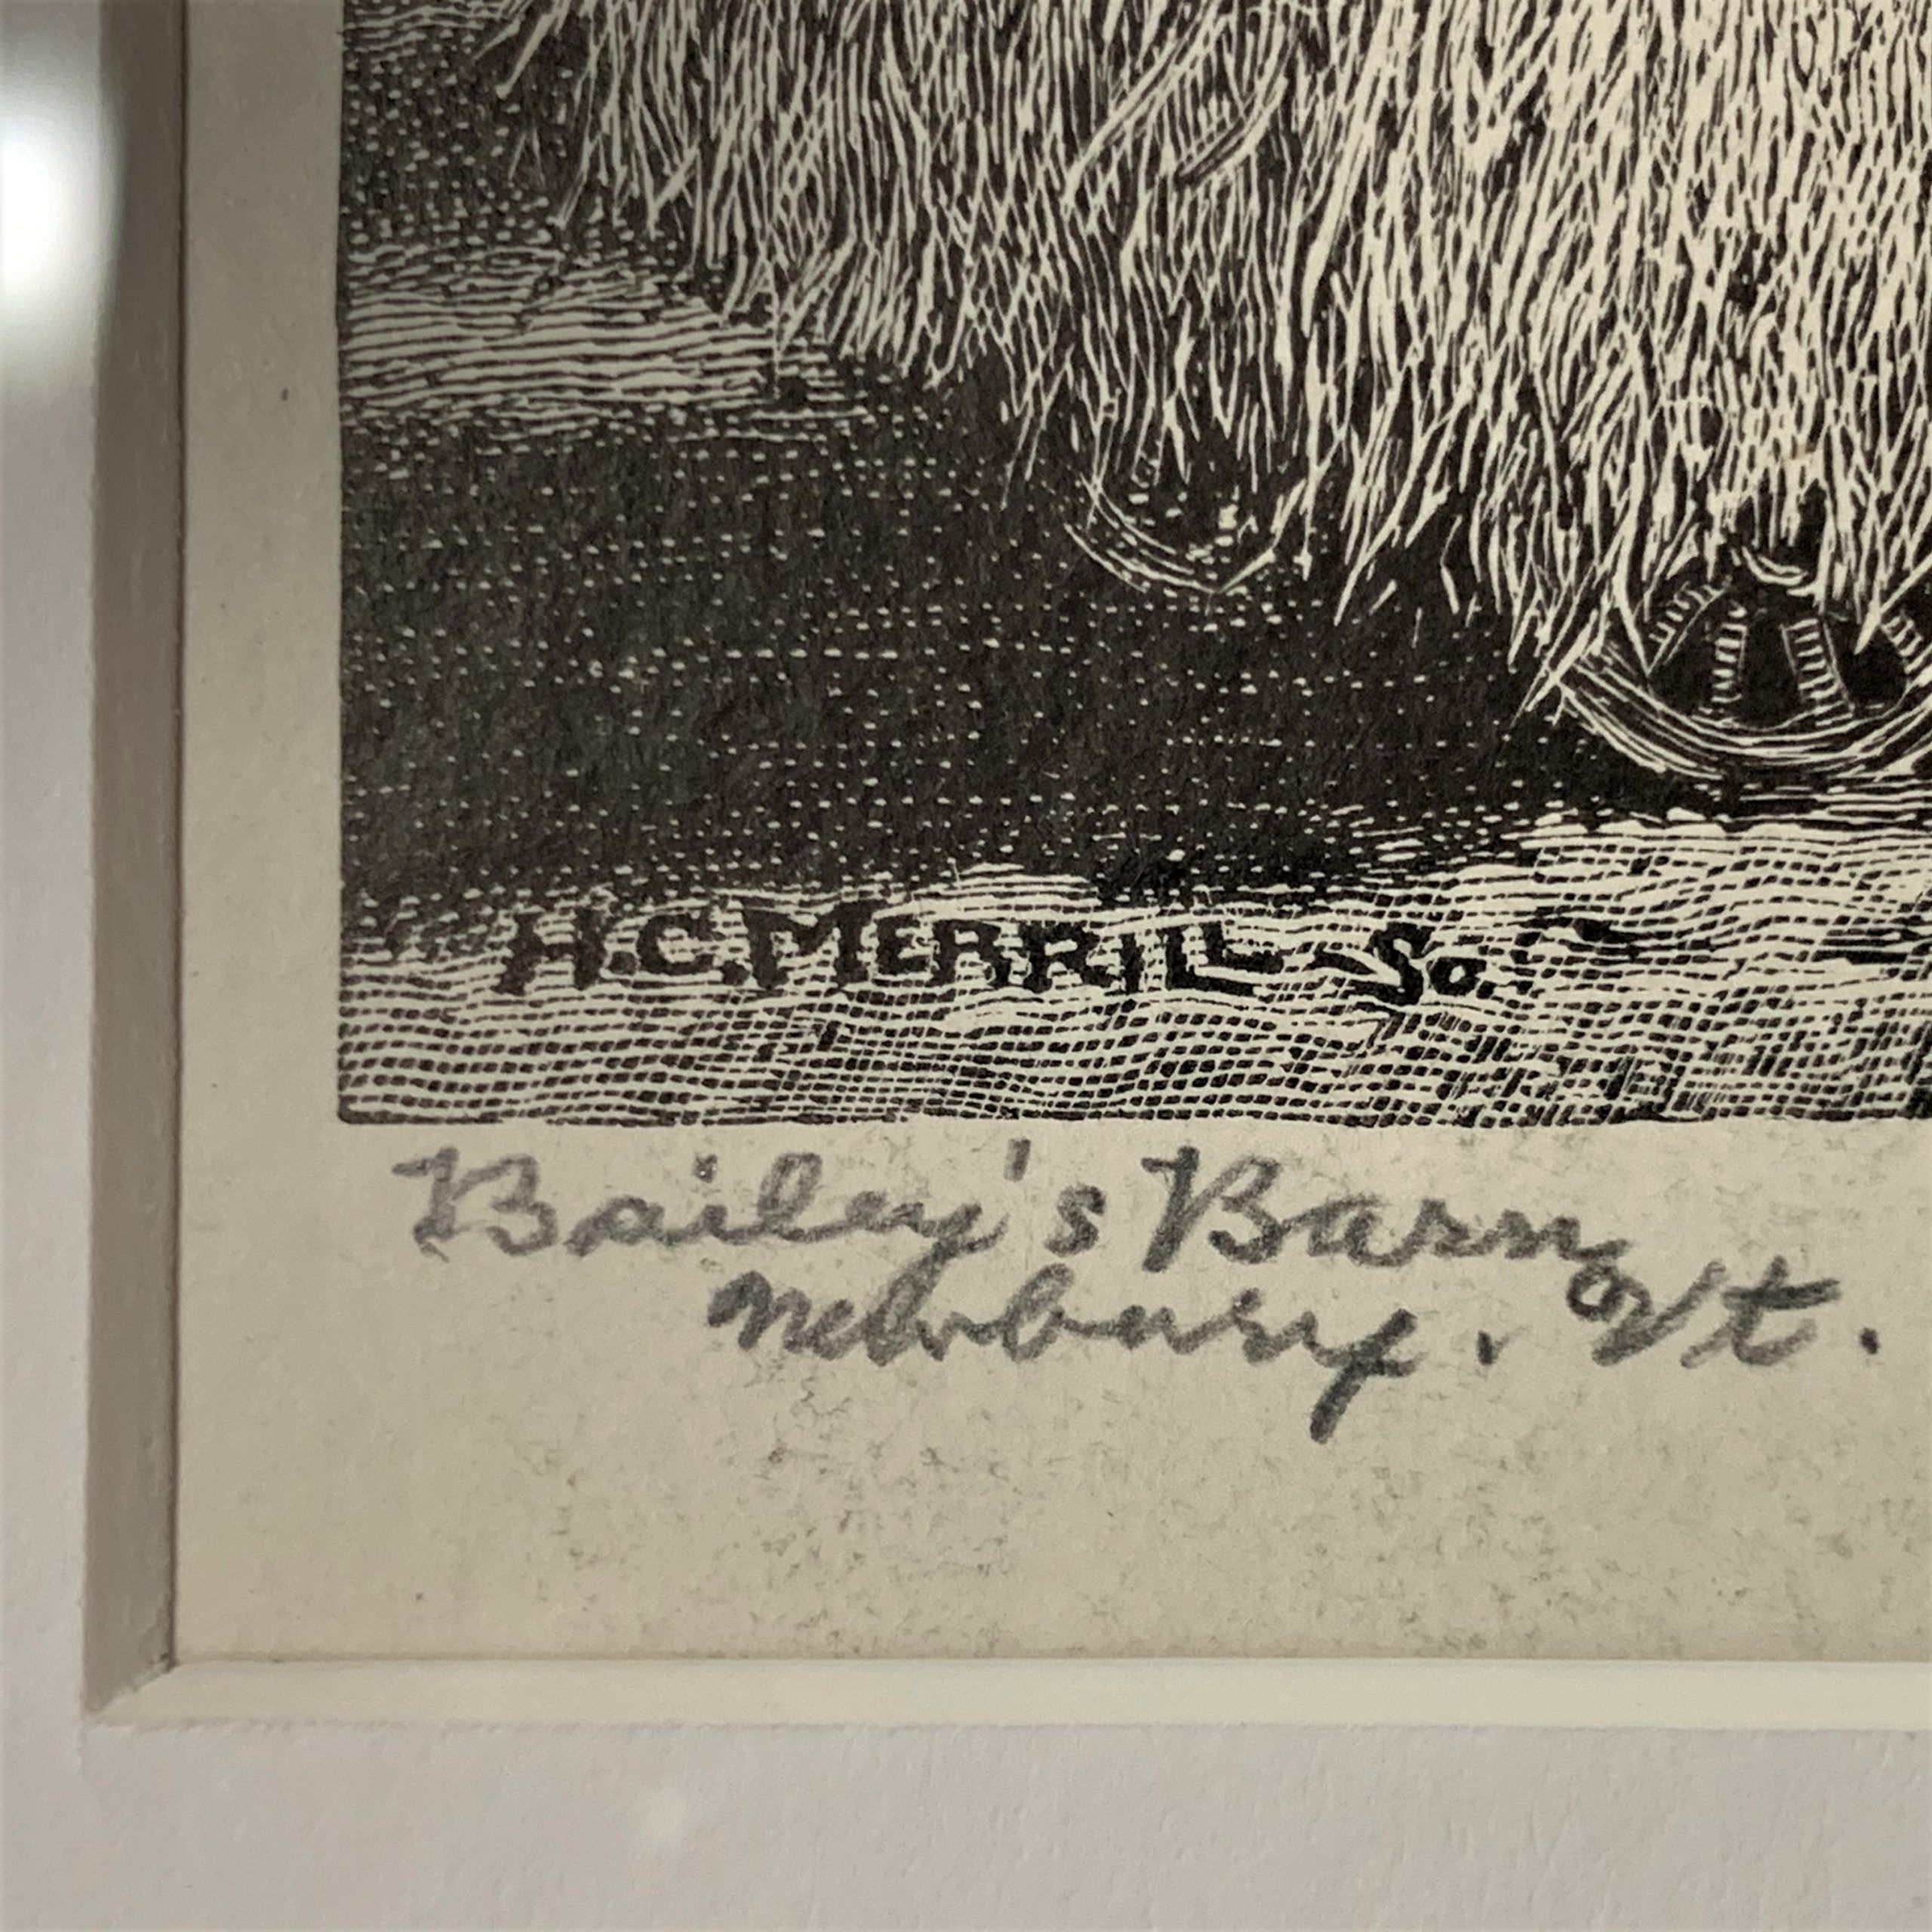 H.C.MERRILL–Sc.
Bailey's Barn
Newbury. Vt.